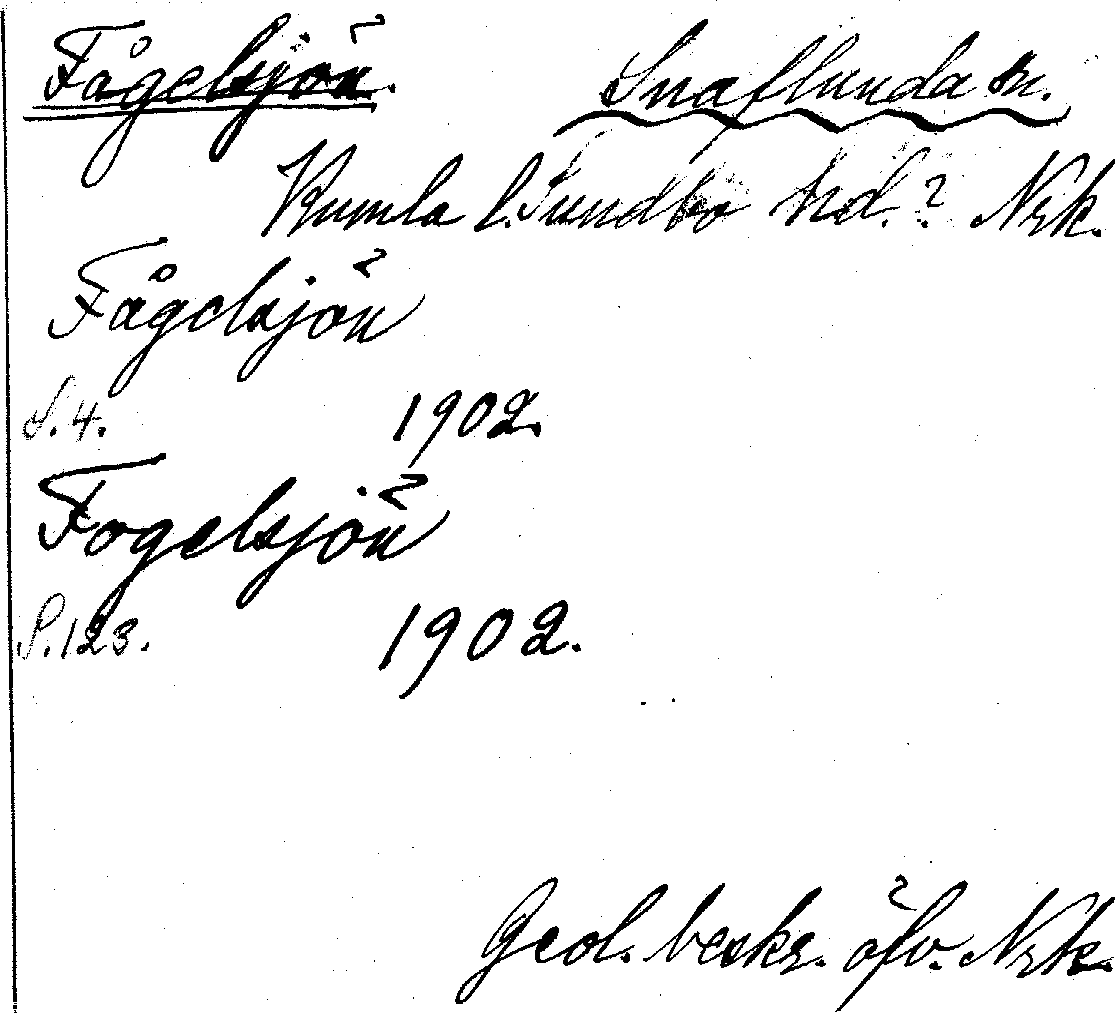 Fågelsjön. Snaflunda sn.
Kumla l. Sundbo hd.? Nrk.
Fågelsjön
S. 4. 1902.
Fogelsjön
S. 123. 1902.
Geol. beskr. öfv. Nrk.